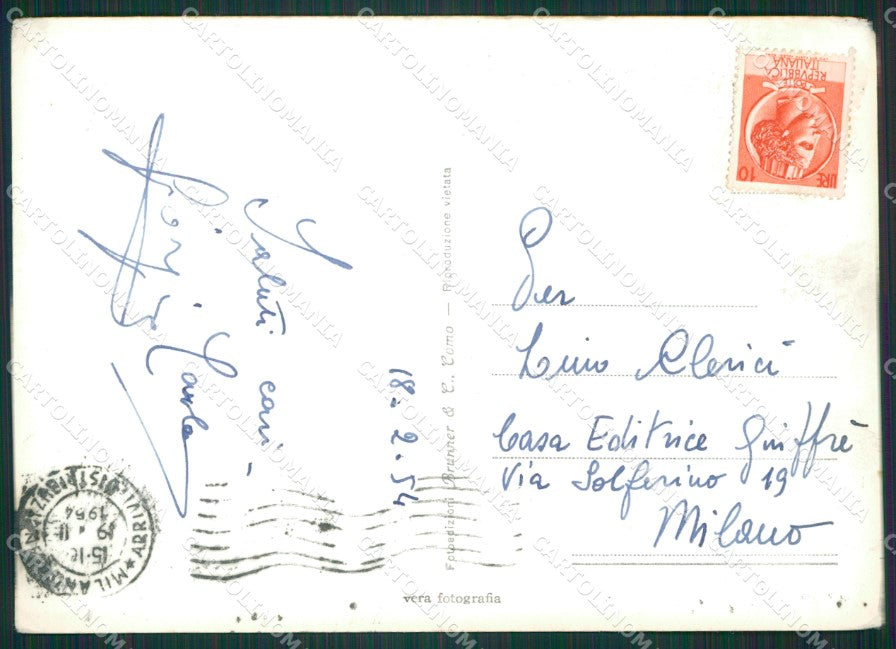 Saluti cari -
Carla
18-2-54
Fotoedizioni Brunner & C., Como — Riproduzione vietata
vera fotografia
REPVBBLICA
ITALIANA
LIRE 10
Per
Lino Clerici
Casa Editrice Giuffrè
Via Solferino 19
Milano
MILANO
ARRIVI
DISTRIBUZ
19 II
1954
CARTOLINOMANIA